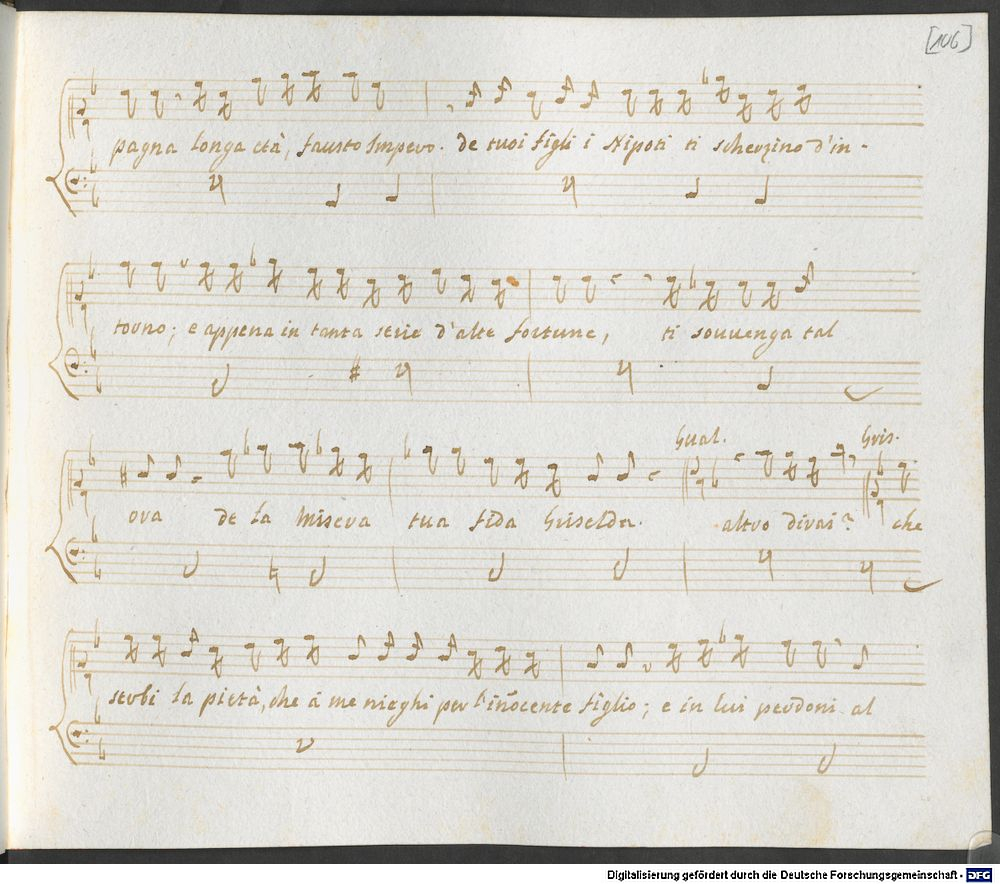 [106]
pagna longa età, fausto Impero. de tuoi figli i Nipoti ti scherzino d'in-
torno; e appena in tanta serie d'alte fortune, ti souuenga tal
Gual. Gris.
ora de la misera tua fida Griselda. altro dirai? che
serbi la pietà, che á me nieghi per l'iñocente figlio; e in lui perdoni al
Digitalisierung gefördert durch die Deutsche Forschungsgemeinschaft - DFG